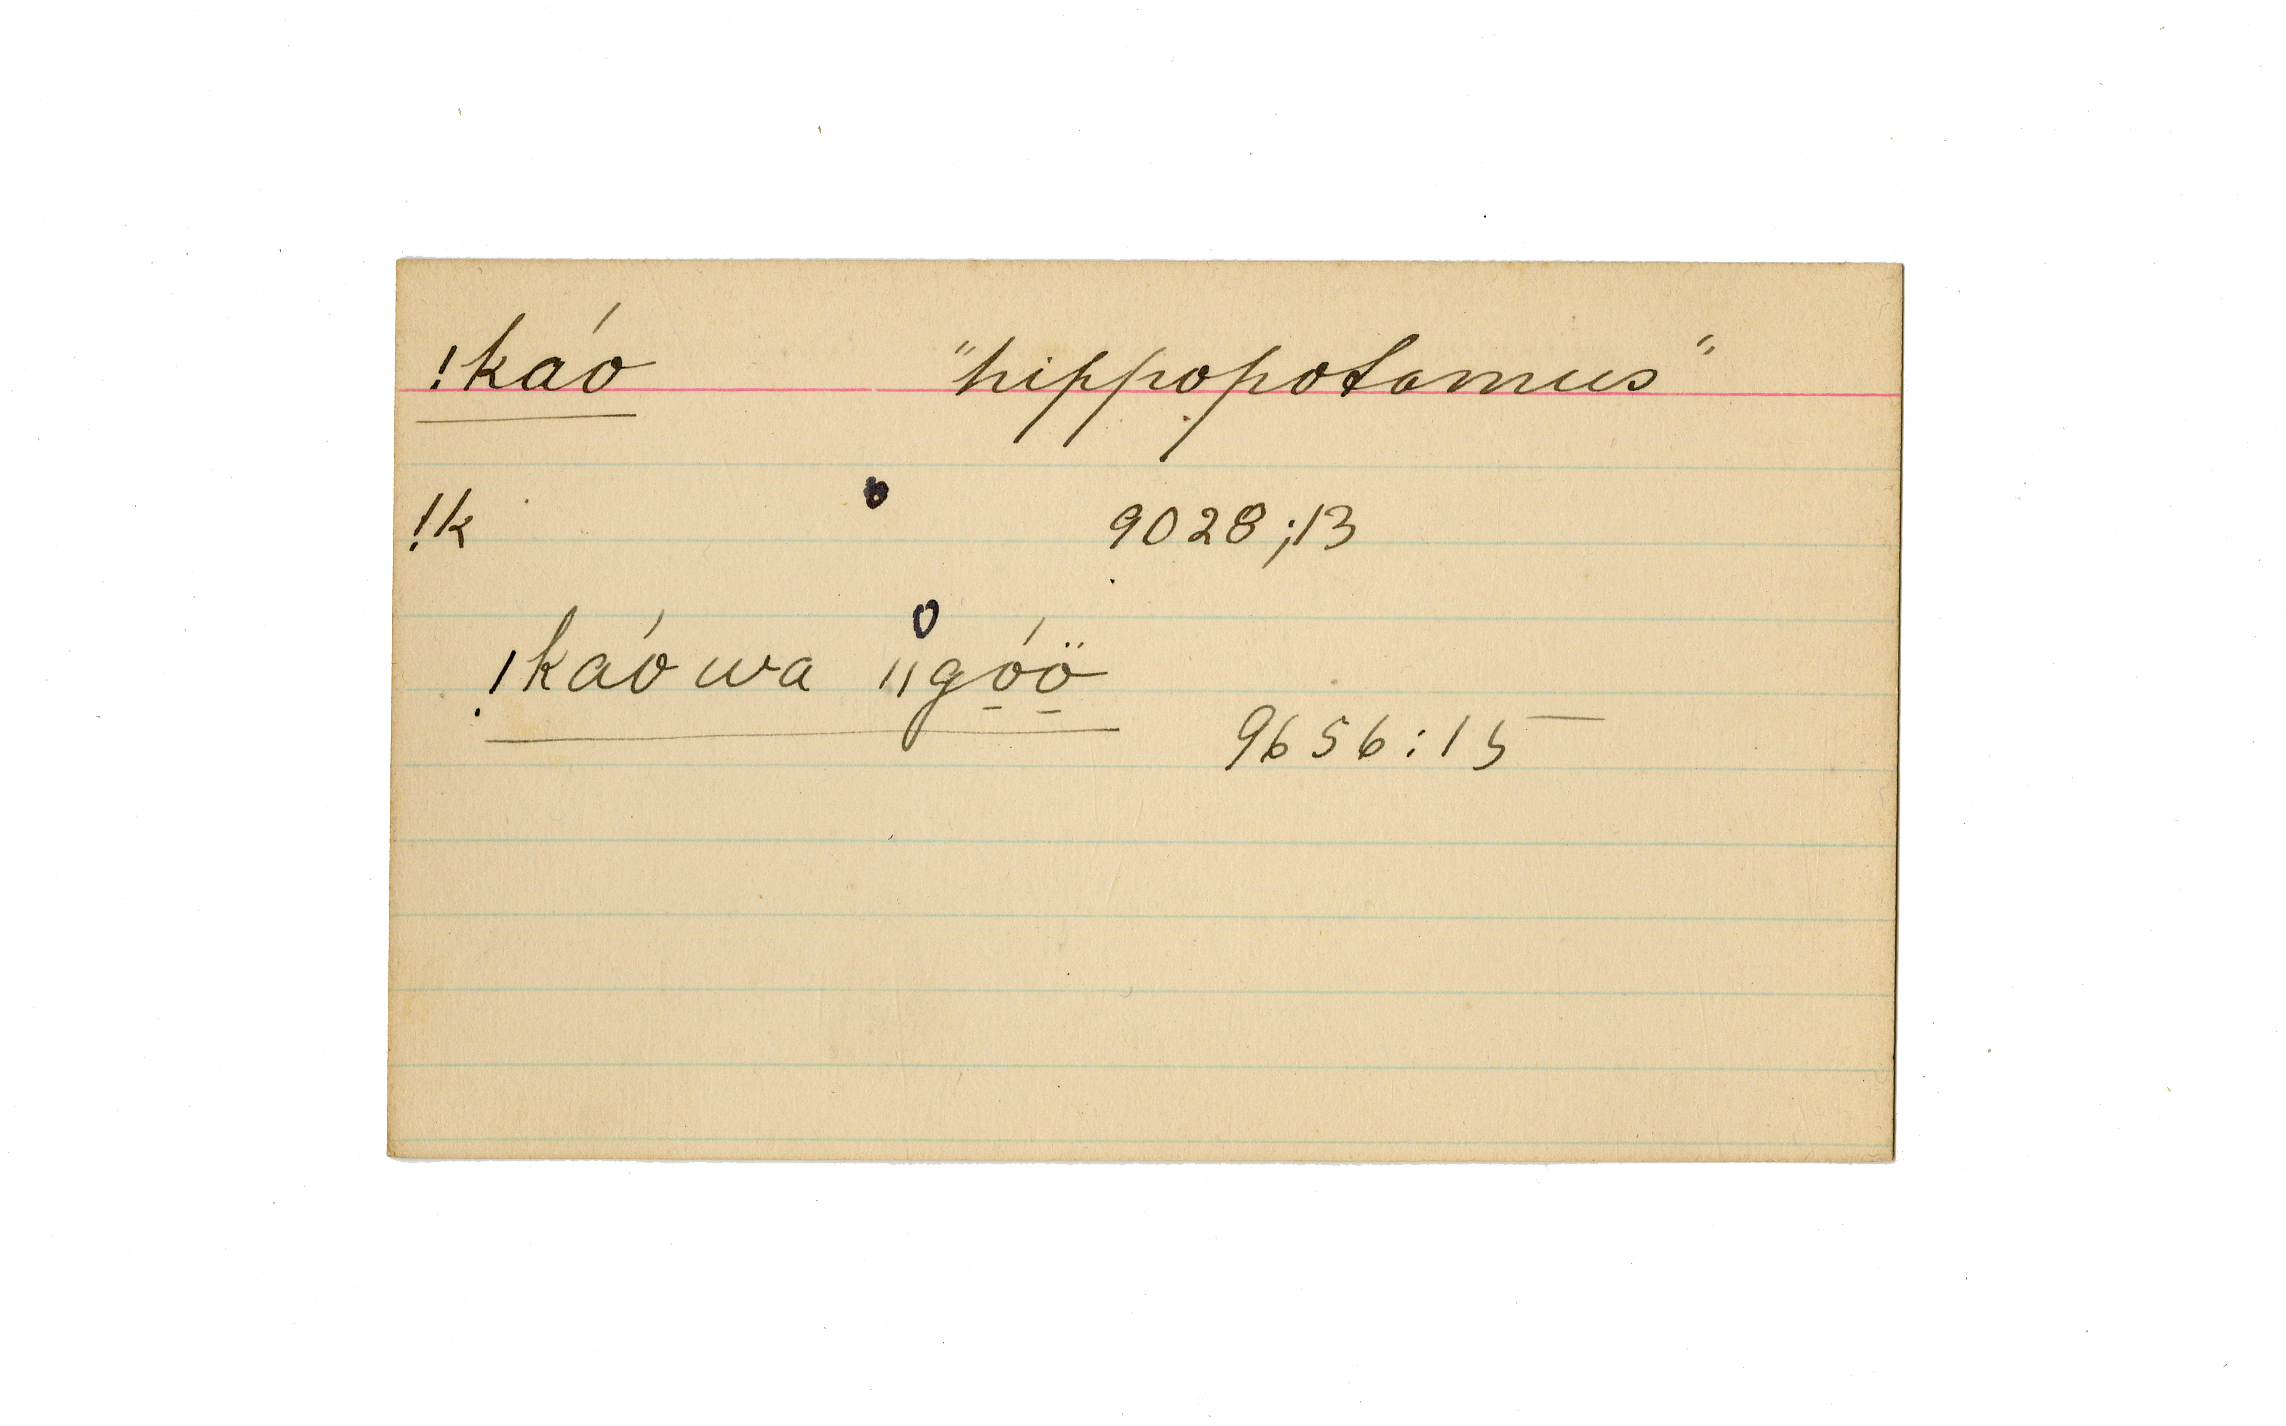 !kaó "hippopotamus"
!k 9028;13
!kaó wa ǁgó̠ö̠
9656:15